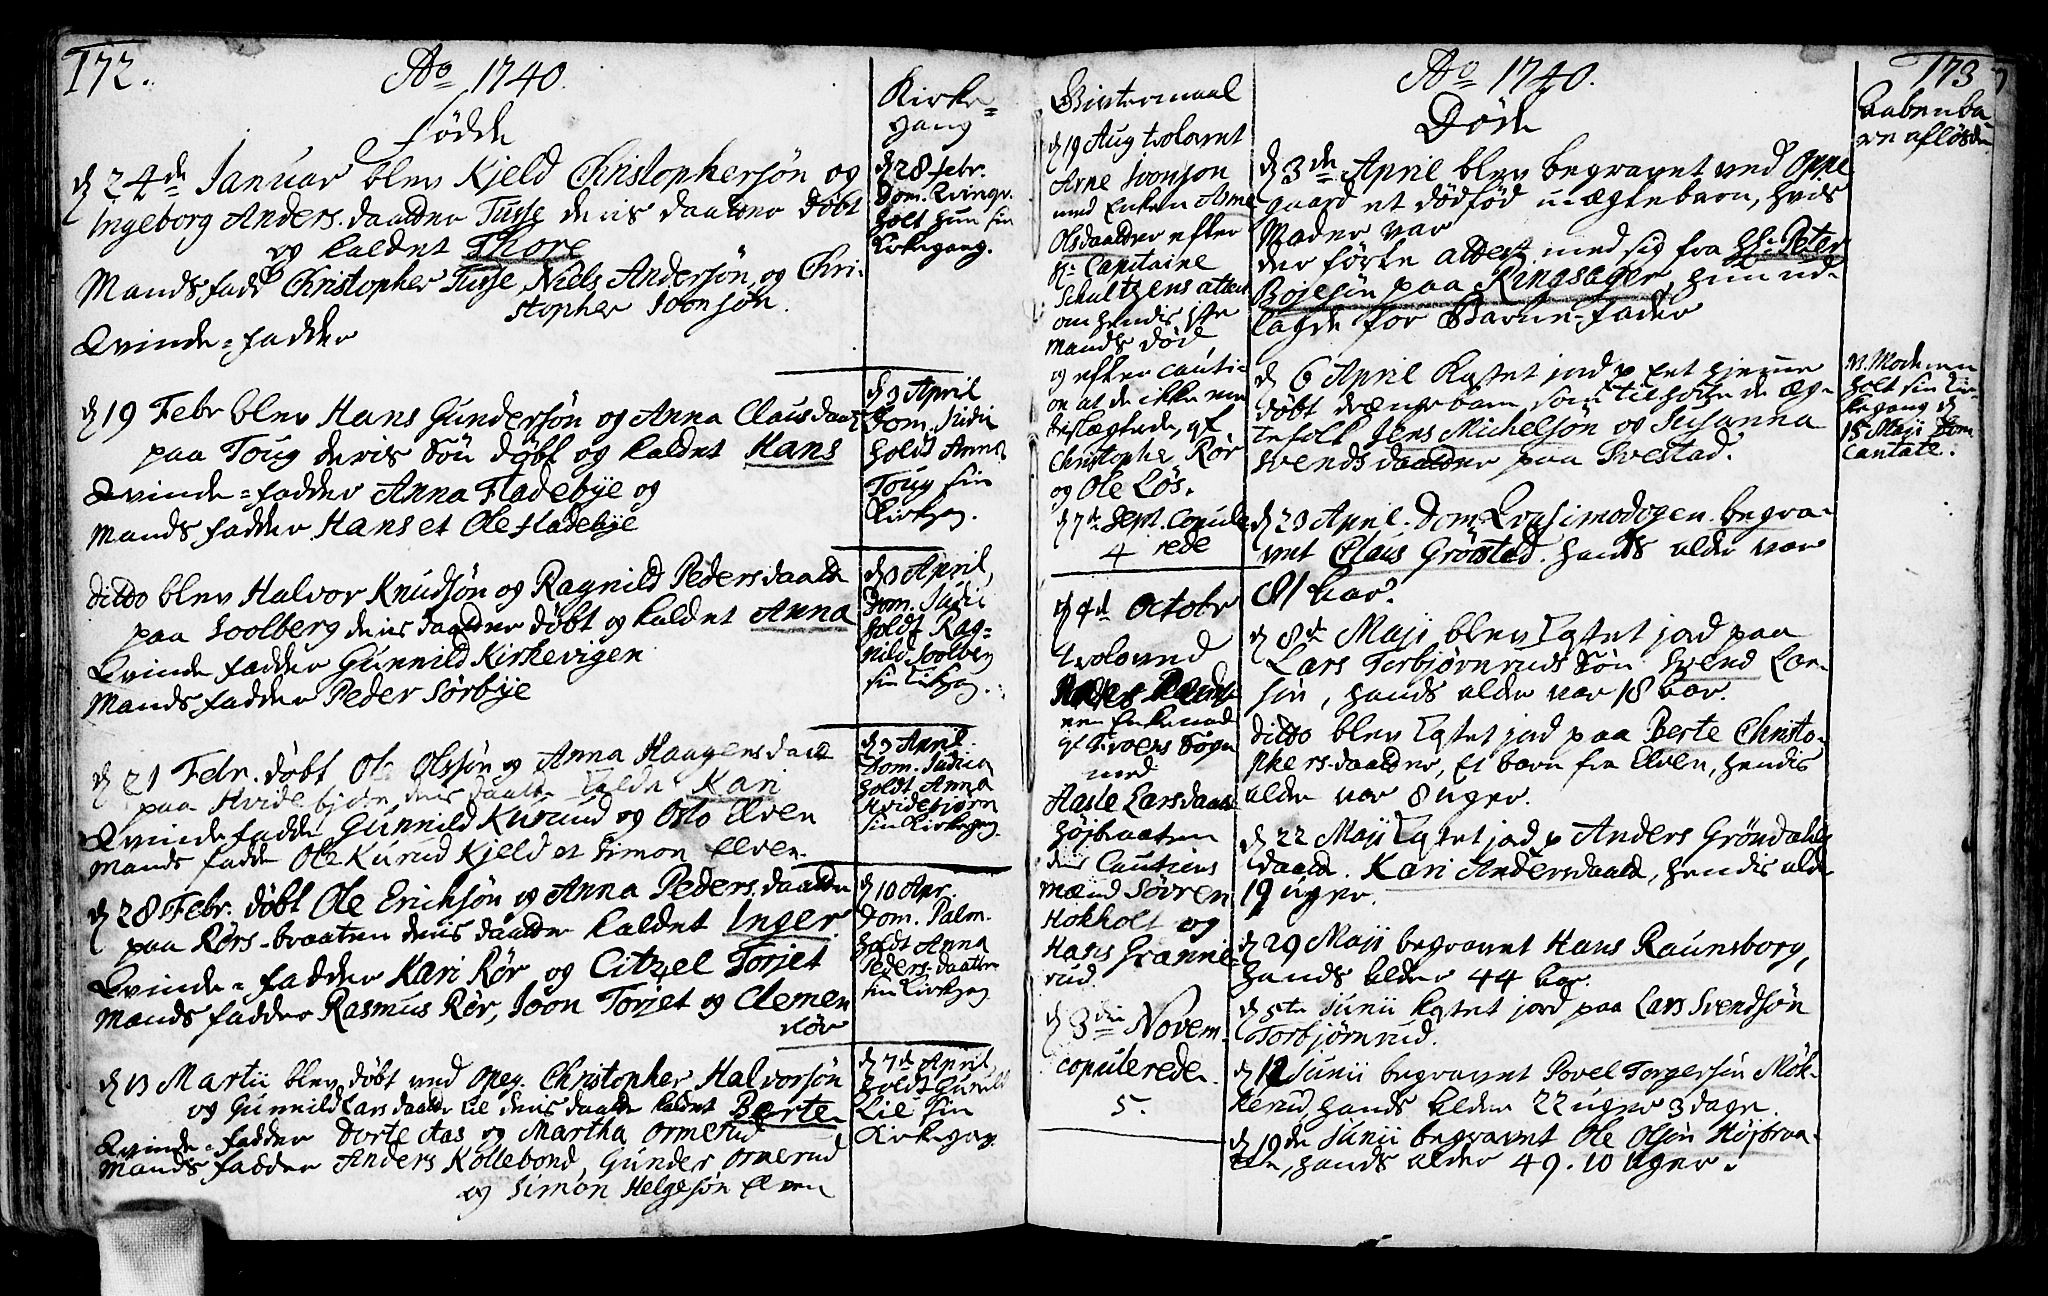 172.
Ao 1740.
Fødde
d 24de Januar blev Kjeld Christophersøn og
Ingeborg Anders.daatter Tusse deris daatter døbt
og kaldet Thore
Mandsfadd Christopher Tusse, Niels Andersøn, og Chri-
stopher Joonsøn.
Qvinde-fadder
d 19 Febr blev Hans Gundersøn og Anna Clausdaatr
paa Toug deris Søn døbt og kaldet Hans
Qvinde-fadder Anna Fladebye og
Mandsfadder Hans et Ole Fladebye
ditto blev Halvor Knudsøn og Ragnild Pedersdaatter
paa Soolberg deris daatter døbt og kaldet Anna
Qvinde fadder Gunnild Kirkevigen
Mandsfadder Peder Sørbye
d 21 Febr. døbt Ole Olssøn og Anna Haagensdaatr
paa Hvidebjørn, deris daatter kaldet Kari
Qvinde fadder Gunnild Kurud og Osto Elven
Mands fadder Ole Kurud Kjeld et Simon Elven.
d 28 Febr. døbt Ole Erichsøn og Anna Peders.daatter
paa Rørs-braaten deris daatter kaldet Inger.
Qvinde-fadder Kari Rør, og Citzel Torjet
Mandsfadder Rasmus Rør, Joon Torjet og Clemen
Rør
d 13 Martii blev døbt ved Opeg. Christopher Halvorsøn
og Gunnild Larsdaatter Lie deris daatter kaldet Berte.
Qvinde-fadder Dorte Aas og Martha Ormerud
Mandsfadder Anders Kollebond, Gunder Ormerud
og Simon Helgesøn Elven
Kirke-
gang
d 28 Febr.
Dom. Qvinqv.
holt hun sin
Kirkegang.
d 3 April
Dom. Judic
holdt Anna
Toug sin
Kirkegg.
d 3 April,
Dom. Judic
holdt Rag-
nild Soolberg
sin Kirkgg.
d 3 April
Dom. Judica
holdt Anna
Hvidebjørn
sin Kirkegg.
d 10 Apr.
Dom. Palm.
holdt Anna
Peders.daatter
sin Kirkegg
d 7de April
holdt Gunild
Lie sin
Kirkegang
173
Ao 1740.
Døde
d 19 Aug trolovet
Arne Joonson
med Enken Arne
Olsdaatter efter
Hr Capitaine
Schultzens attest
om hendis 1ste
Mands død,
og efter cauti-
on at de ikke ere
beslægtede, af
Christopher Rør
og Ole Løs.
d 7de Sept. Copule-
4 rede
d 4de Octobr
trolovd
en Enkemand
af sogn
med
Aasle Larsdaatr
Højbraaten
deris Cautions
Mænd Søvren
Hokholt og
Hans Granne-
rud.
d 3die Novem.
copulerede.
5.
d 3de April blev begravet ved Oppe
gaard et dødfød uægtebarn, hvis
Moder var
der førte attest med sig fra Hr. Peter
Bojesøn paa Ringsager, hun ud-
lagde for Barne-fader
d 6 April kastet jord p Eet hjemme
døbt drængebarn som tilhørte de æg-
tefolk Jens Michelsøn og Susanna
Svendsdaatter paa Svestad.
d 23 April. Dom. Qvasimodogen. begra-
vet Claus Grøstad. hands alder var
81 aar.
d 8de Maji blev kastet jord paa
Lars Torbjørnruds Søn Svend Lar-
søn, hands alder var 18 aar.
ditto blev kastet jord paa Berte Christo-
phersdaatter, Et barn fra Elven, hendis
alder var 8 uger.
d 22 Maji kastet jord p Anders Grøndahls
daatter. Kari Andersdaatr, hendis alder
19 uger.
d 29 Maji begravet Hans Raunsborg,
hands alder 44 aar.
d 5te Junii kastet jord paa Lars Svendsøn
Torbjørnrud.
d 12 Junii begravet Povel Torgersøn Møk-
kerud, hands alder 22 uger 3 dage.
d 19de Junii begravet Ole Olsøn Højbraa-
ten, hands alder 49. 10 uger.
Aabenba-
re afløsde
NB. Moderen
holt sin Kir-
kegang d
15 Maji Dom
Cantate.